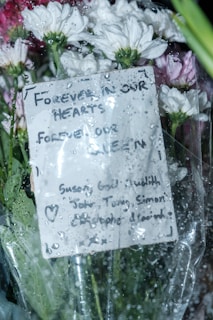 FOREVER IN OUR
HEARTS
FOREVER OUR
QUEEN
Susan, Gail Judith
John Tony, Simon
Christophe
xx